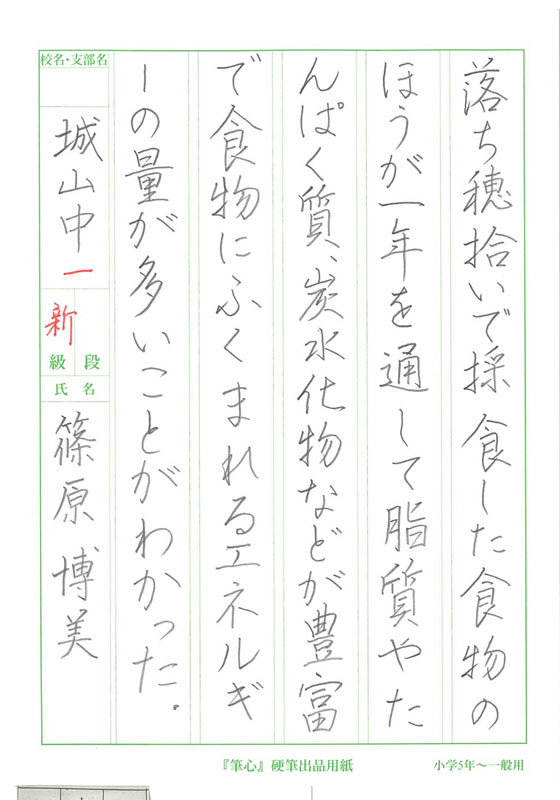 落ち穂拾いで採食した食物の
ほうが一年を通して脂質やた
んぱく質、炭水化物などが豊富
で食物にふくまれるエネルギ
ーの量が多いことがわかった。
校名・支部名
城山中一
新
級段
氏名
篠原博美
『筆心』硬筆出品用紙
小学5年〜一般用